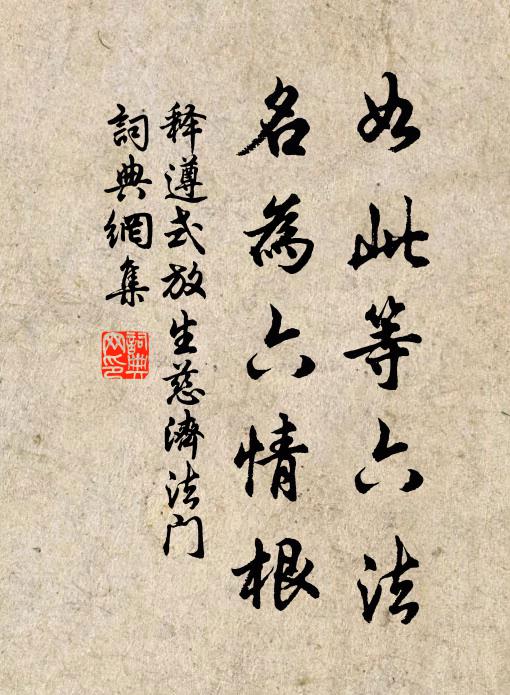 如此等六法
名為六情根
释遵式放生慈濟法门
詞典網集
詞典
网印